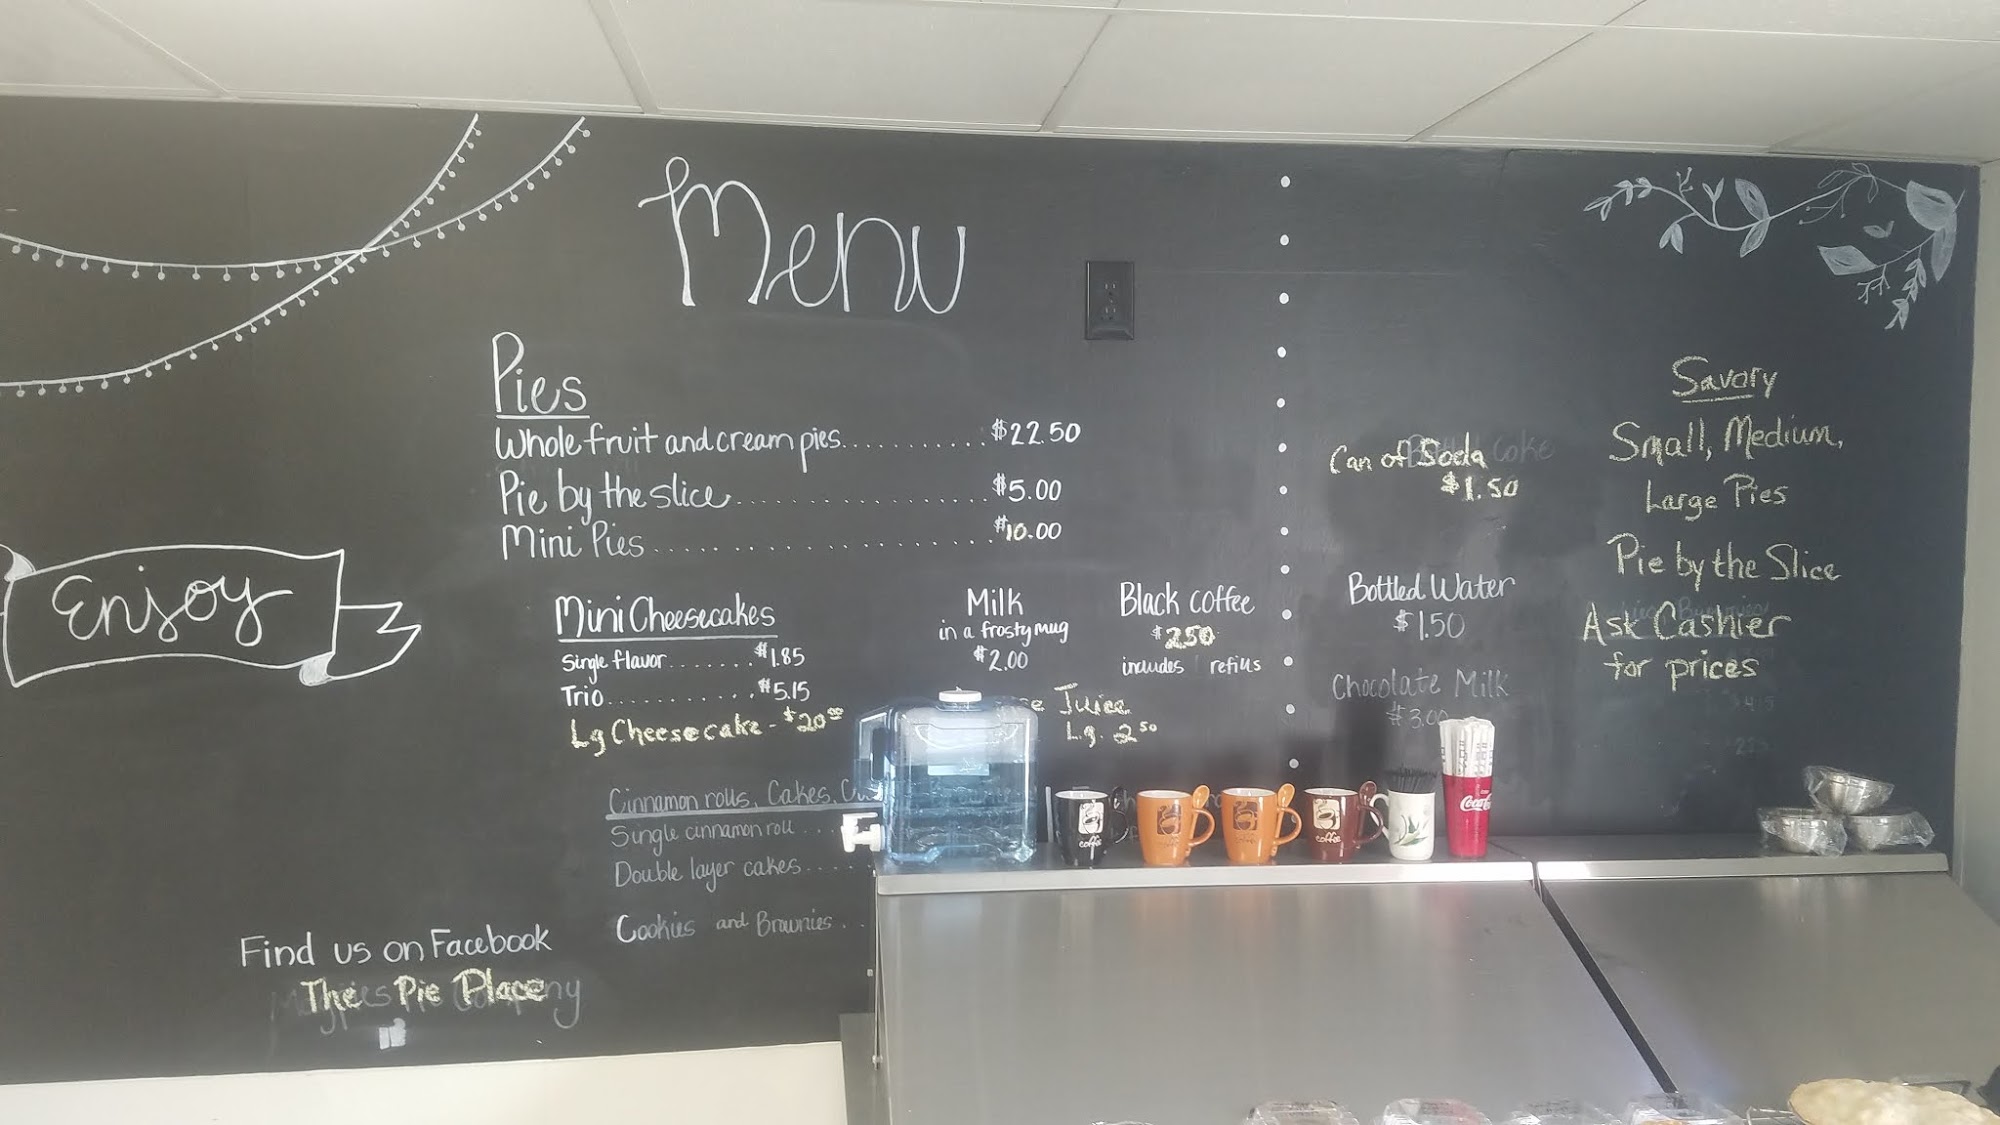 Menu
Pies
Whole fruit and cream pies.......... $22.50
Pie by the slice.................... $5.00
Mini Pies.................... $10.00
Enjoy
Mini Cheesecakes
Single flavor....... $1.85
Trio.......... $5.15
Lg Cheesecake - $20.00
Milk
in a frosty mug
$2.00
Black coffee
$2.50
includes refills
Juice
Lg. 2.50
Cinnamon rolls, Cakes,
Single cinnamon roll ...
Double layer cakes....
Cookies and Brownies...
Find us on Facebook
The Pie Place
Can of Soda
$1.50
Bottled Water
$1.50
Chocolate Milk
$3.00
Savory
Small, Medium,
Large Pies
Pie by the Slice
Ask Cashier
for prices
coffee
coffee
Coca-Cola